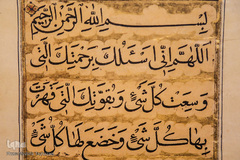 بِسْمِ اللهِ الرَّحْمٰنِ الرَّحِيْمِ
اَللّٰهُمَّ اِنّى اَسْئَلُكَ بِرَحْمَتِكَ الَّتى
وَسِعَتْ كُلَّ شَىْءٍ وَ بِقُوَّتِكَ الَّتى قَهَرْتَ
بِها كُلَّ شَىْءٍ وَ خَضَعَ لَها كُلُّ شَىْءٍ